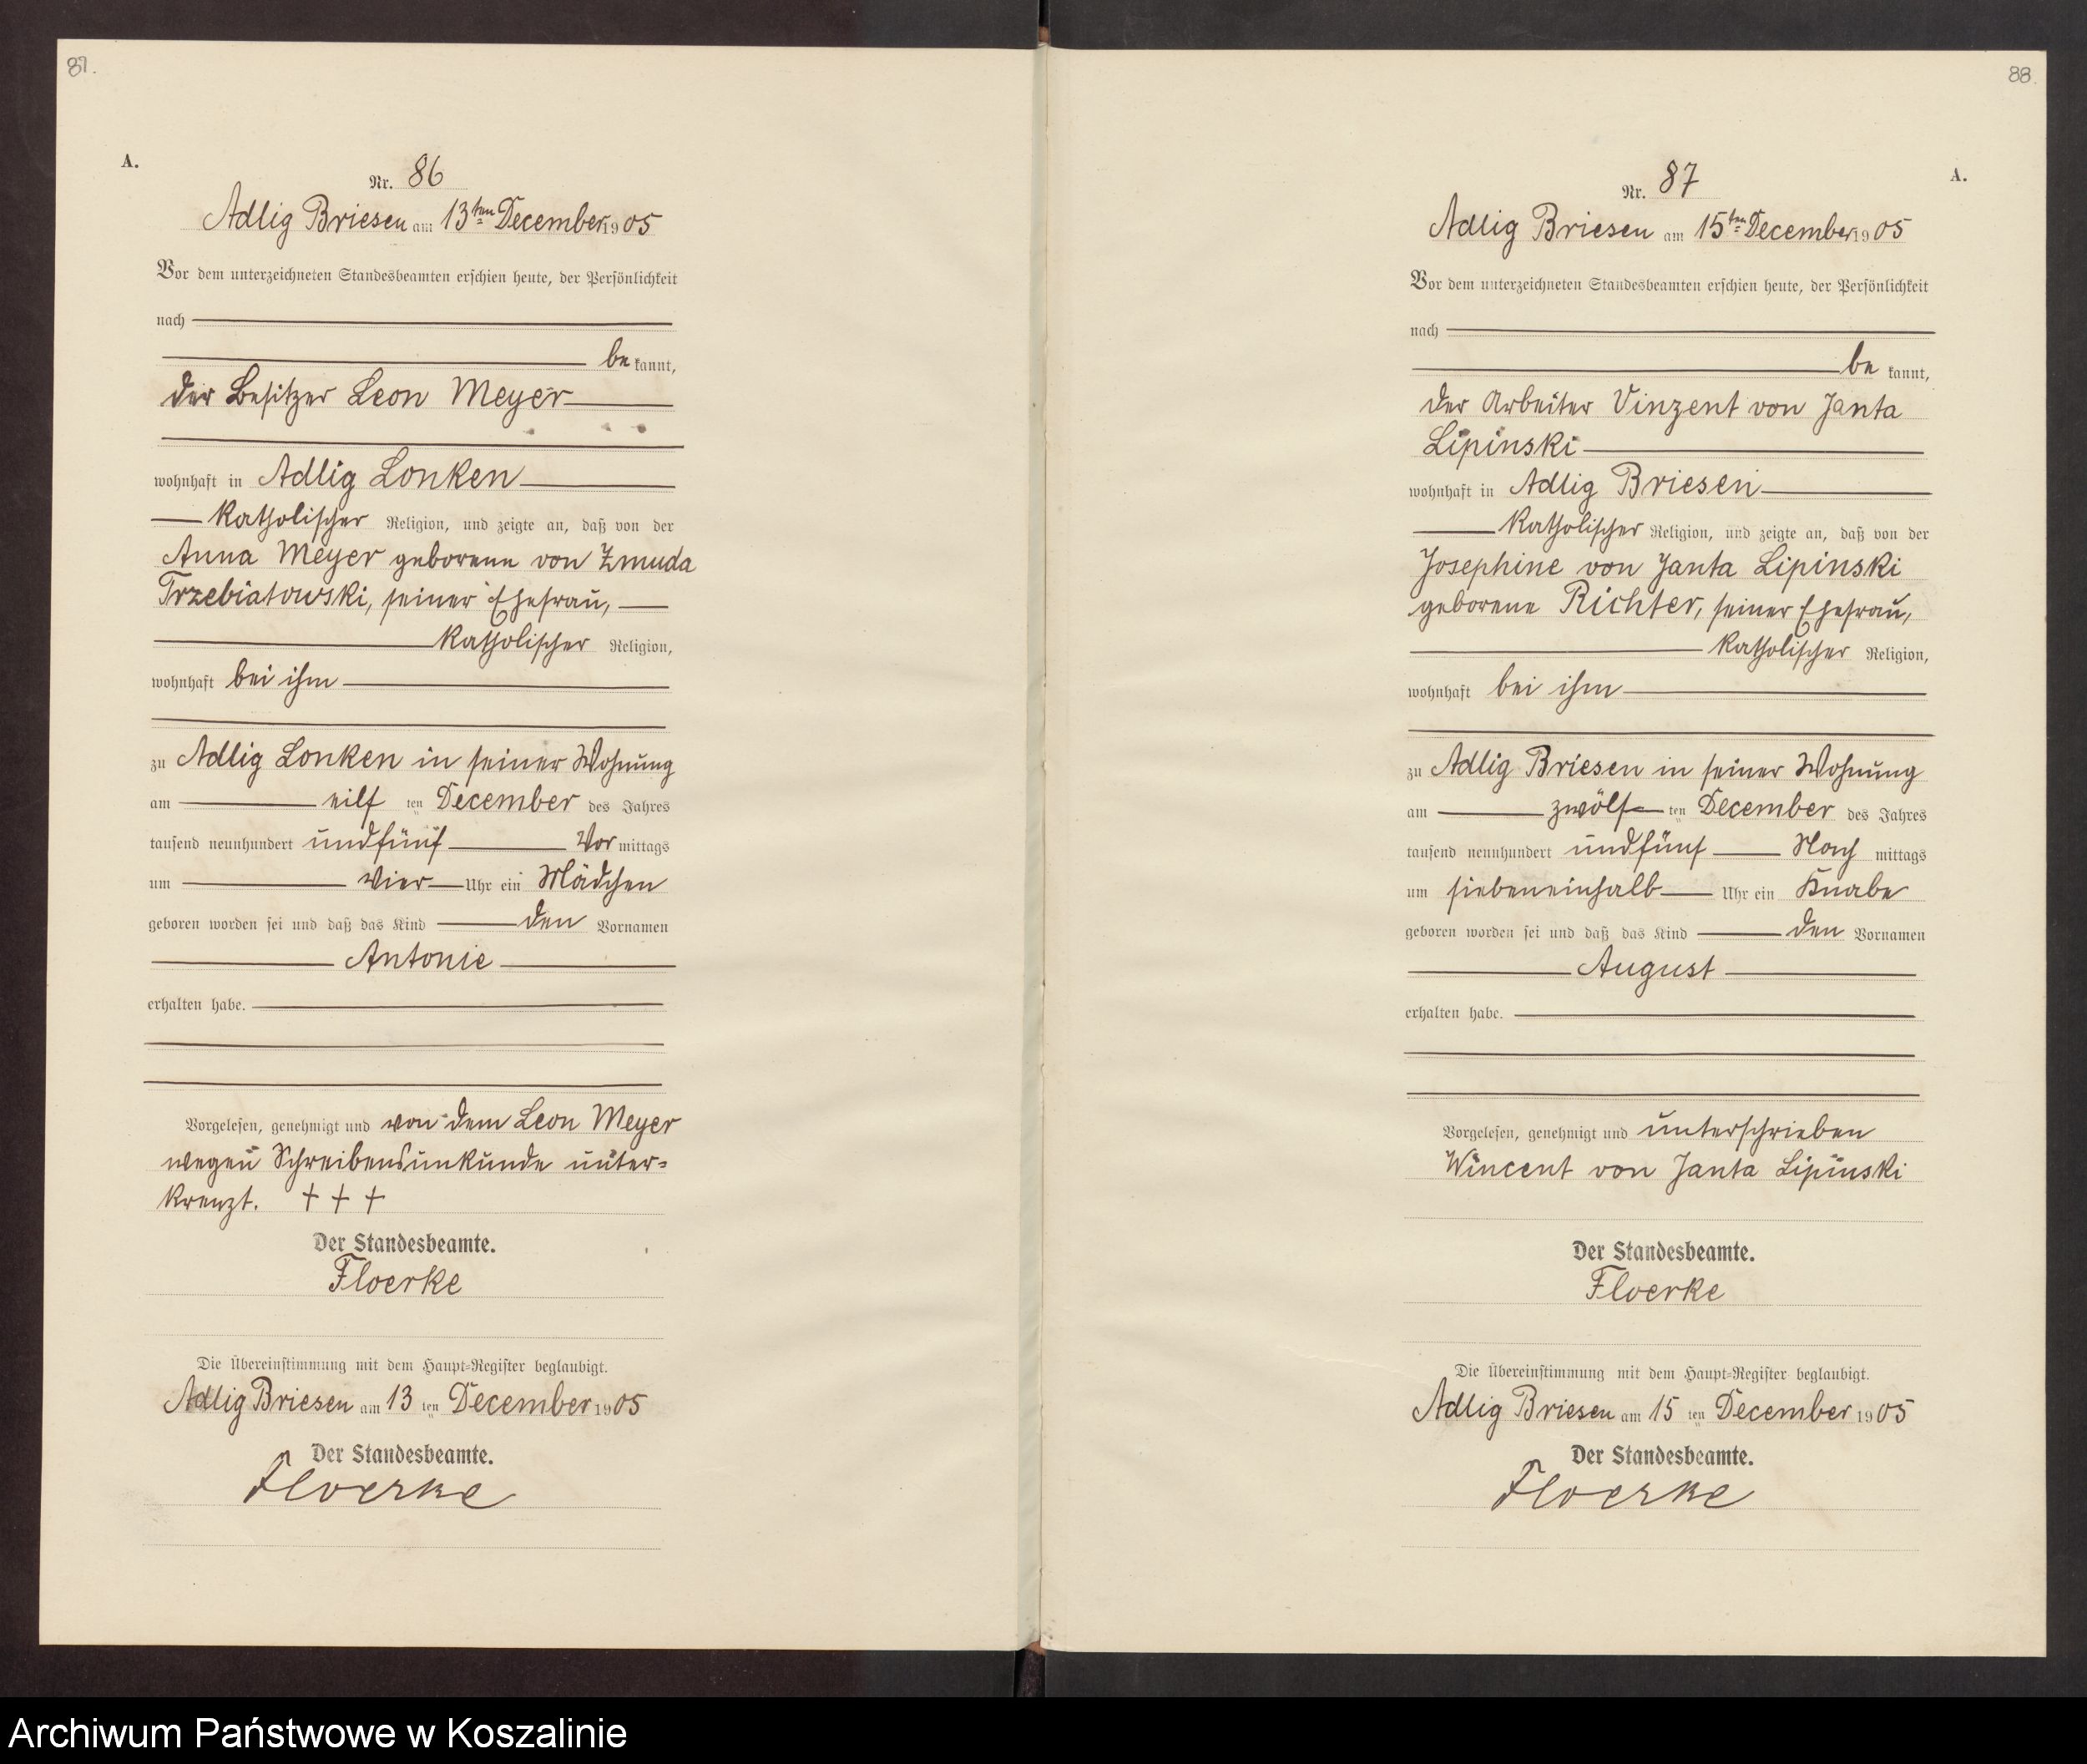 87.
A.
Nr. 86
Adlig Briesen am 13ten December 1905
Vor dem unterzeichneten Standesbeamten erschien heute, der Persönlichkeit
nach
be kannt,
der Besitzer Leon Meyer
wohnhaft in Adlig Lonken
katholischer Religion, und zeigte an, daß von der
Anna Meyer geborene von Zmuda
Trzebiatowski, seiner Ehefrau,
katholischer Religion,
wohnhaft bei ihm
zu Adlig Lonken in seiner Wohnung
am eilf ten December des Jahres
tausend neunhundert undfünf Vor mittags
um vier Uhr ein Mädchen
geboren worden sei und daß das Kind den Vornamen
Antonie
erhalten habe.
Vorgelesen, genehmigt und von dem Leon Meyer
wegen Schreibensunkunde unter=
kreuzt. + + +
Der Standesbeamte.
Floerke
Die Übereinstimmung mit dem Haupt=Register beglaubigt.
Adlig Briesen am 13 ten December 1905
Der Standesbeamte.
Floerke
88.
A.
Nr. 87
Adlig Briesen am 15ten December 1905
Vor dem unterzeichneten Standesbeamten erschien heute, der Persönlichkeit
nach
be kannt,
der Arbeiter Vinzent von Janta
Lipinski
wohnhaft in Adlig Briesen
katholischer Religion, und zeigte an, daß von der
Josephine von Janta Lipinski
geborene Richter, seiner Ehefrau,
katholischer Religion,
wohnhaft bei ihm
zu Adlig Briesen in seiner Wohnung
am zwölf ten December des Jahres
tausend neunhundert undfünf Nach mittags
um siebeneinhalb Uhr ein Knabe
geboren worden sei und daß das Kind den Vornamen
August
erhalten habe.
Vorgelesen, genehmigt und unterschrieben
Wincent von Janta Lipinski
Der Standesbeamte.
Floerke
Die Übereinstimmung mit dem Haupt=Register beglaubigt.
Adlig Briesen am 15 ten December 1905
Der Standesbeamte.
Floerke
Archiwum Państwowe w Koszalinie